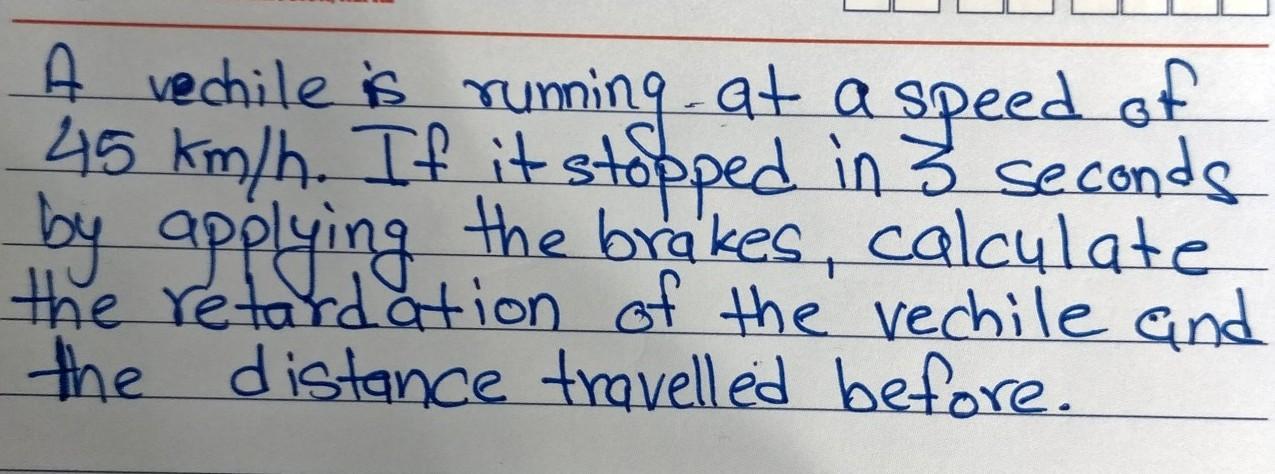 A vechile is running at a speed of
45 km/h. If it stopped in 3 seconds
by applying the brakes, calculate
the retardation of the vechile and
the distance travelled before.